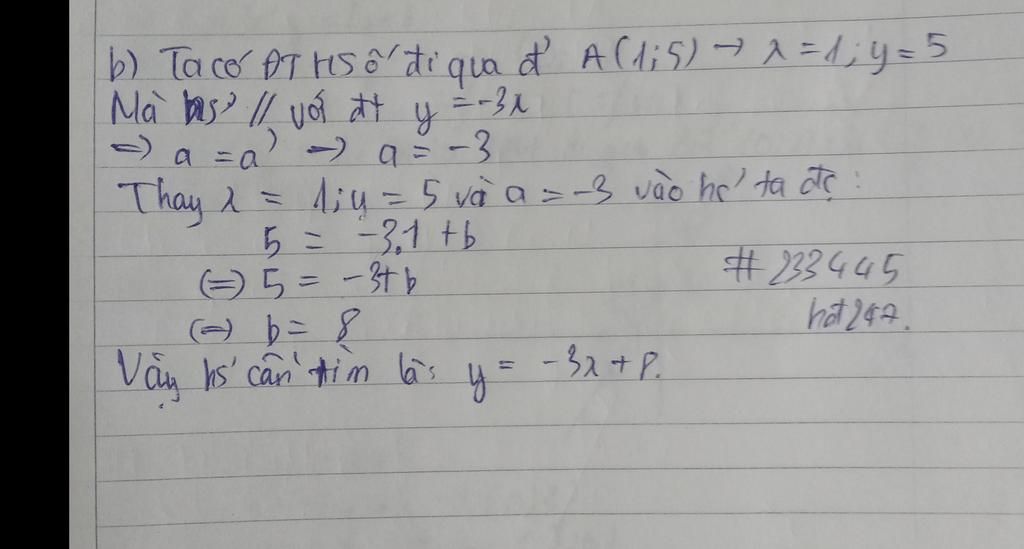 b) Ta có ĐTHSố đi qua đ' A(1;5) → x = 1; y = 5
Mà hs' // với đt y = -3x
=> a = a' → a = -3
Thay x = 1; y = 5 và a = -3 vào hs' ta đc:
5 = -3.1 + b
(=) 5 = -3+b
(=) b = 8
Vậy hs' cần tìm là: y = -3x + 8.
#233445
hot247.